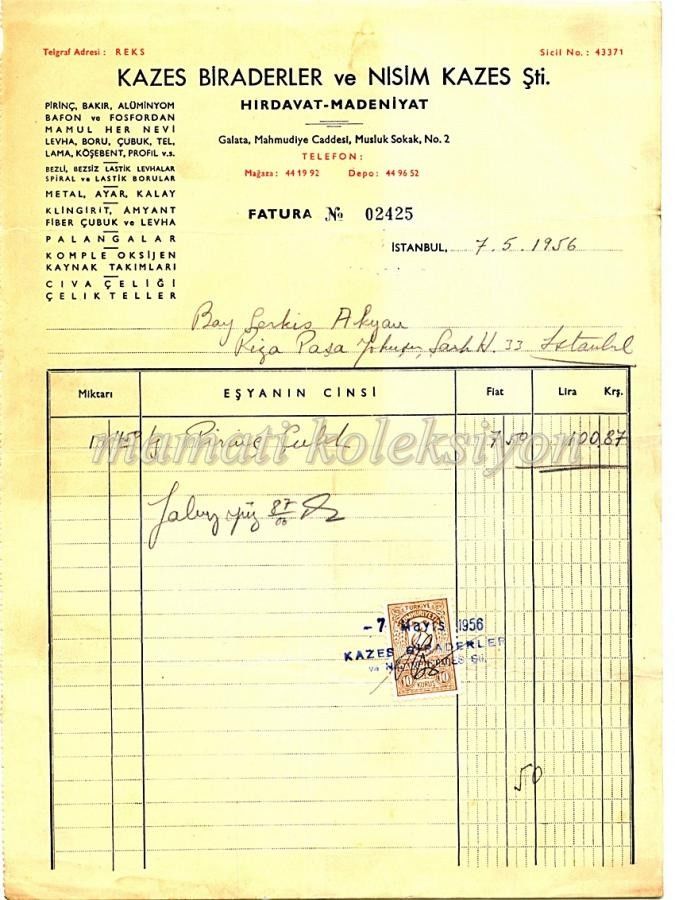 Telgraf Adresi : REKS
Sicil No. : 43371
KAZES BİRADERLER ve NİSİM KAZES Şti.
HIRDAVAT-MADENİYAT
Galata, Mahmudiye Caddesi, Musluk Sokak, No. 2
TELEFON :
Mağaza : 44 19 92 Depo : 44 96 52
PİRİNÇ, BAKIR, ALÜMİNYOM
BAFON ve FOSFORDAN
MAMUL HER NEVİ
LEVHA, BORU, ÇUBUK, TEL,
LAMA, KÖŞEBENT, PROFİL v.s.
BEZLİ, BEZSİZ LASTİK LEVHALAR
SPİRAL ve LASTİK BORULAR
METAL, AYAR, KALAY
KLİNGİRİT, AMYANT
FİBER ÇUBUK ve LEVHA
PALANGALAR
KOMPLE OKSİJEN
KAYNAK TAKIMLARI
CIVA ÇELİĞİ
ÇELİKTELLER
FATURA № 02425
İSTANBUL, 7.5.1956
Bay Serkis Akyan
Riza Paşa Yokuşu, Şark H. 33 İstanbul
Miktarı EŞYANIN CİNSİ Fiat Lira Krş.
Pirinç 7 50 100,87
mamati koleksiyon
Yalnız yüz 87/00
TÜRKİYE
- 7 Mayıs 1956
KAZES BİRADERLER
10 KURUŞ 10
50